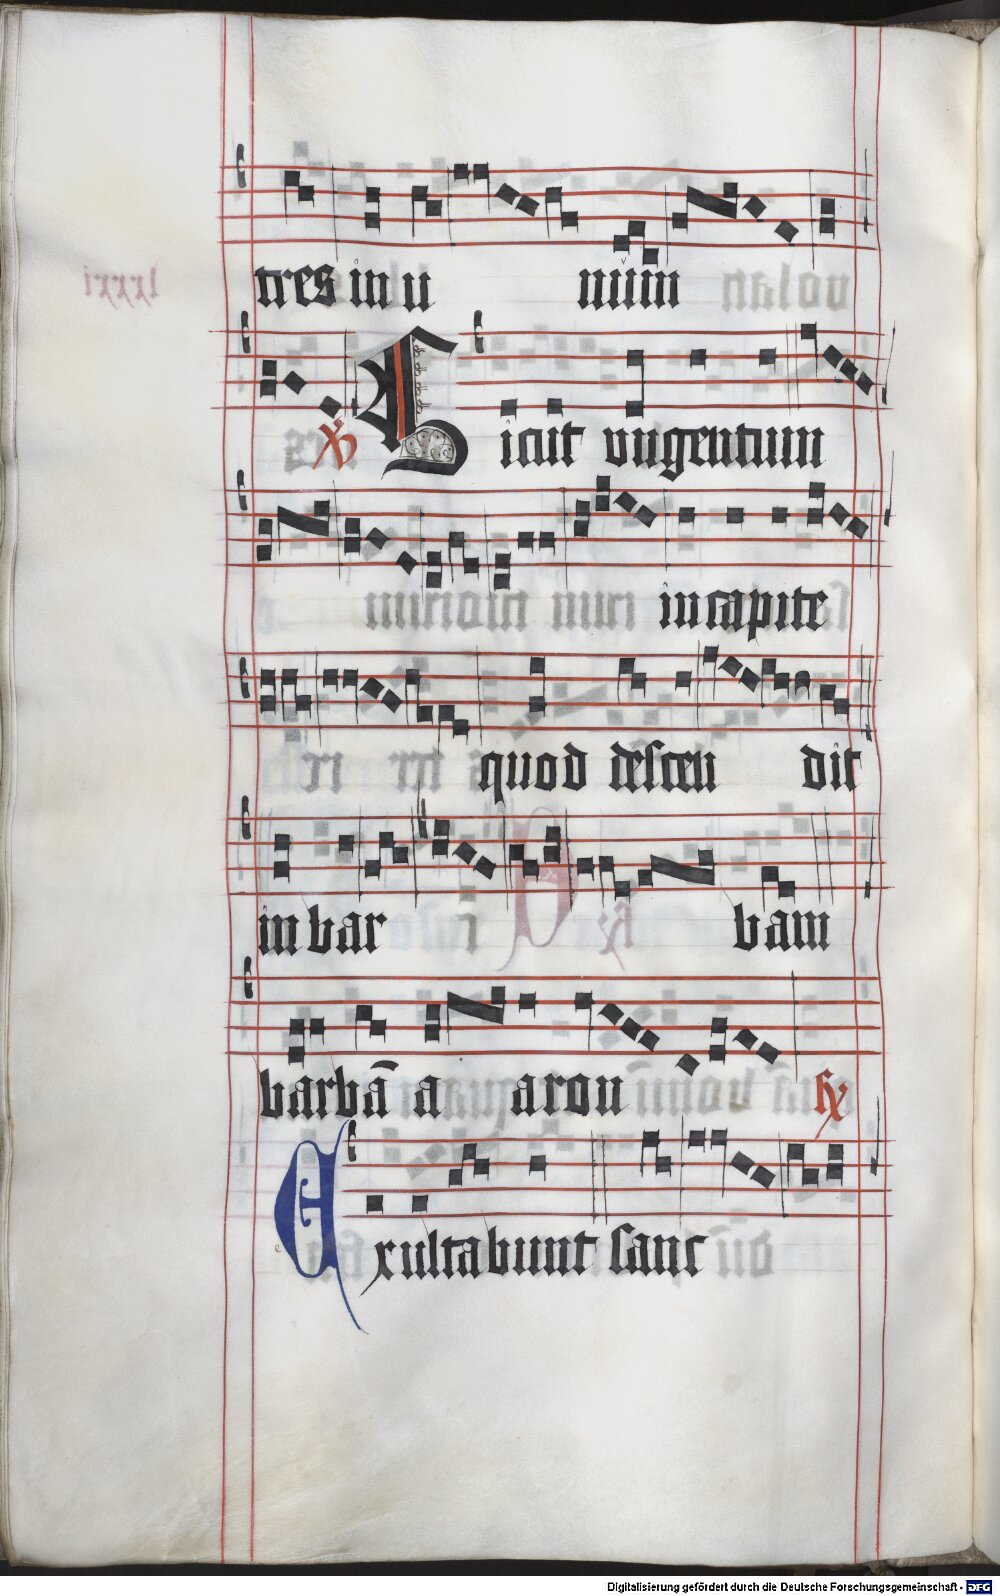 tres in u num
℣ Sicut vngentum
in capite
quod descen dit
in bar bam
barbā a aron
Exultabunt sanc
Digitalisierung gefördert durch die Deutsche Forschungsgemeinschaft - DFG